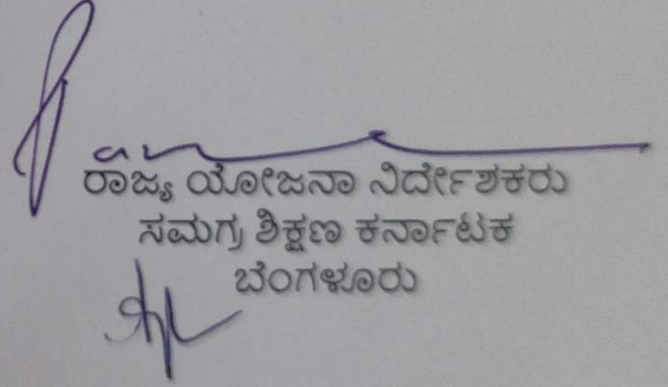 ರಾಜ್ಯ ಯೋಜನಾ ನಿರ್ದೇಶಕರು
ಸಮಗ್ರ ಶಿಕ್ಷಣ ಕರ್ನಾಟಕ
ಬೆಂಗಳೂರು